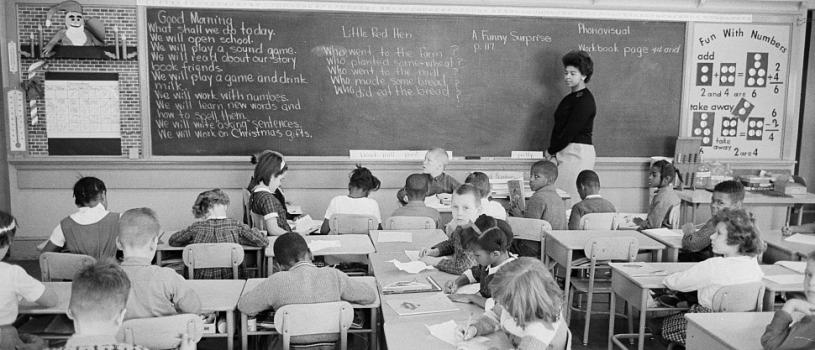 Good Morning
What shall we do today.
We will open school.
We will play a sound game.
We will read about our story
book friends.
We will play a game and drink
milk.
We will work with numbers.
We will learn new words and
how to spell them.
We will write asking sentences.
We will work on Christmas gifts.
Little Red Hen
Who went to the farm ?
Who planted some wheat ?
Who went to the mill ?
Who made some bread ?
Who did eat the bread ?
A Funny Surprise
p. 117
Phonovisual
Workbook page and
Fun With Numbers
add
2
+4
6
2 and 4 are 6
take away
6
-2
4
take
away
2 are 4